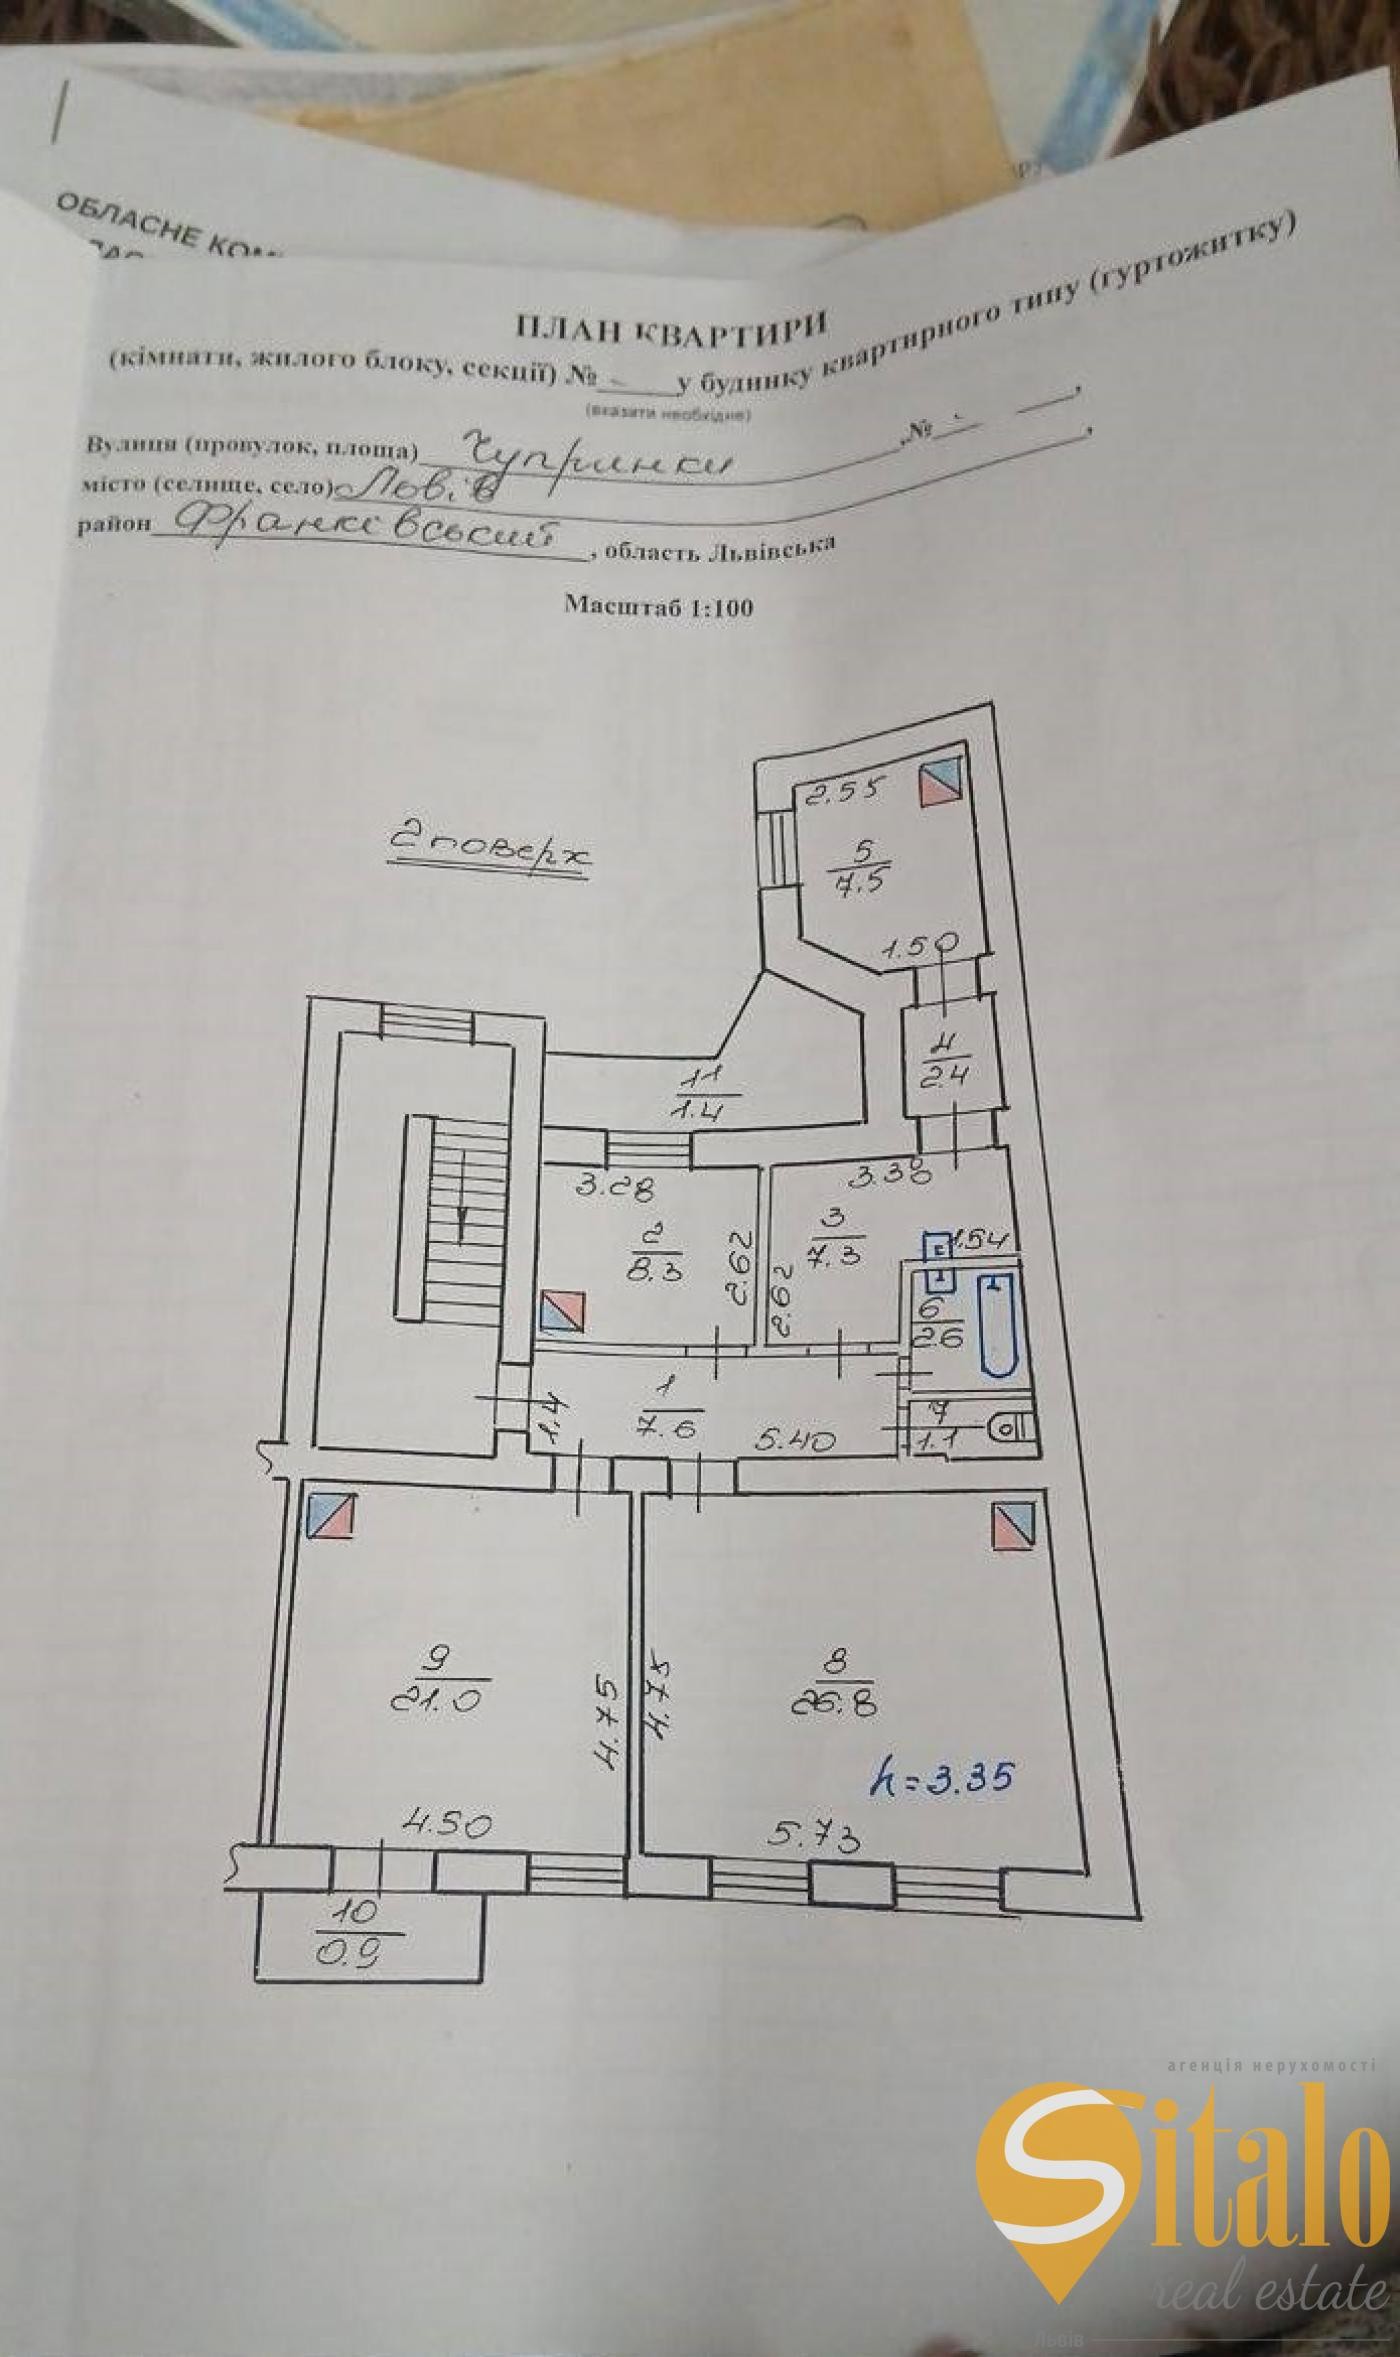 ОБЛАСНЕ
ПЛАН КВАРТИРИ
(кімнати, жилого блоку, секції) № у будинку квартирного типу (гуртожитку)
(вказати необхідне)
Вулиця (провулок, площа) Чупринки, №,
місто (селище, село) Львів,
район Франківський, область Львівська
Масштаб 1:100
2 поверх
2.55
5
7.5
1.50
4
2.4
11
1.4
3.28
3.38
2
8.3
2.62
3
7.3
2.62
1.54
6
2.6
1
7.6
1.4
5.40
7
1.1
9
21.0
4.75
4.75
8
26.8
h=3.35
4.50
5.73
10
0.9
агенція нерухомості
Sitalo
real estate
Львів